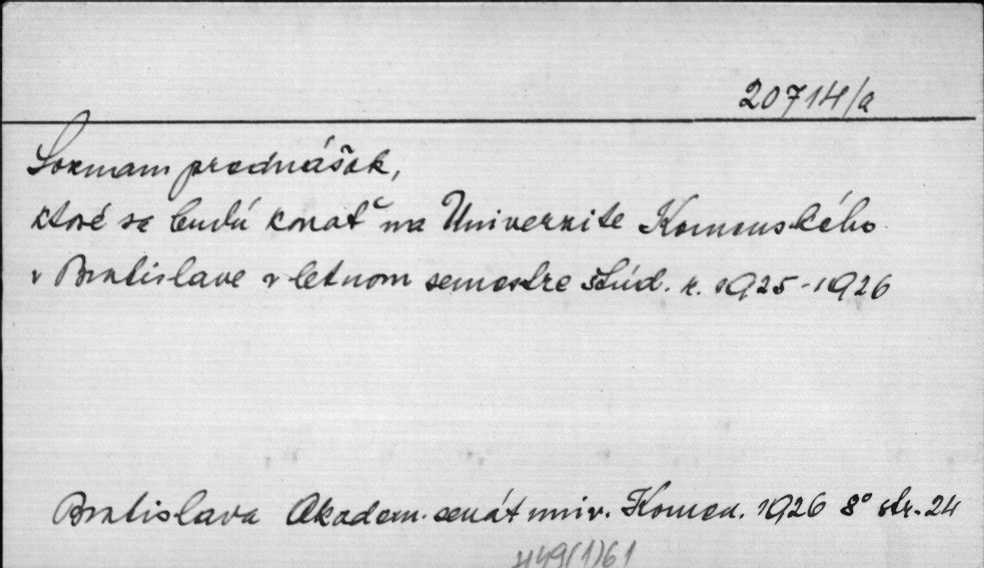 20714/a
Soznam prednášok,
ktoré sa budú konať na Univerzite Komenského
v Bratislave v letnom semestre štúd. r. 1925-1926
Bratislava Akadem. senát univ. Komen. 1926 8° str. 24